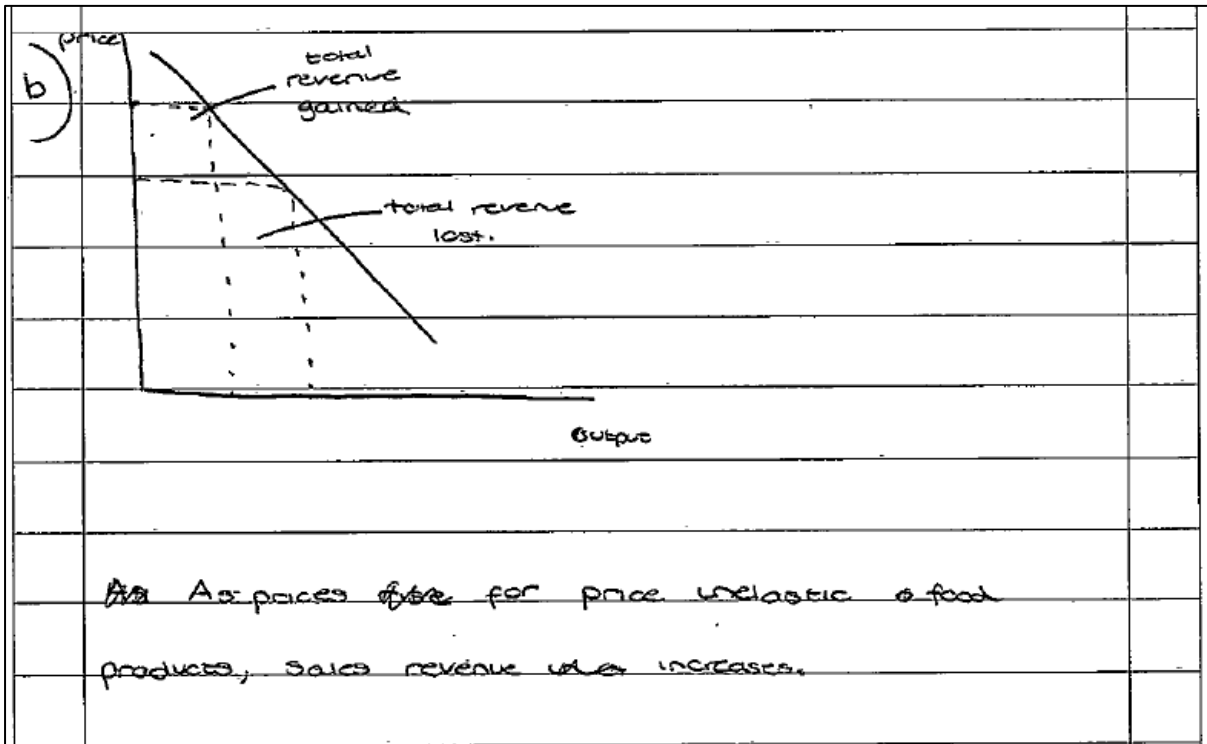 b)
price
total
revenue
gained
total revenue
lost.
output
As prices for price inelastic food
products, sales revenue increases.